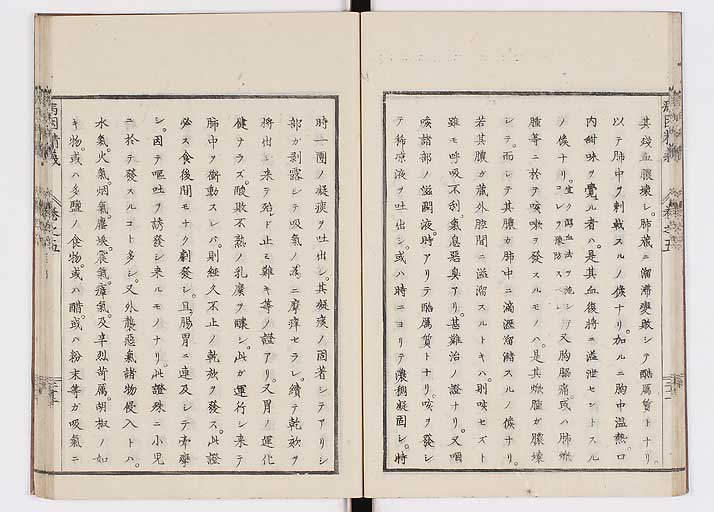 其殘血膿壞シ。肺藏ニ溜滯變敗シテ酷厲質トナリ。
以テ肺中ヲ刺戟スルノ候ナリ。加ルニ胸中温熱。口
内甜味ヲ覺ル者ハ。是其血復將ニ溢泄セントスル
ノ候ナリ。宜ク瀉血法ヲ施シテコレヲ豫防スベシ又胸膓痛。或ハ肺焮
腫等ニ於テ咳嗽ヲ發スルモノハ。是其焮腫ガ膿壞
シテ。而シテ其膿ガ肺中ニ滴瀝溜瀦スルノ候ナリ。
若其膿ガ藏外腔間ニ溢溜スルトキハ。則咳セズト
雖モ呼吸不利。氣息惡臭アリ。甚難治ノ證ナリ。又咽
喉諸部ノ滋潤液。時アリテ酷厲質トナリ。咳ヲ發シ
テ稀凉液ヲ吐出シ。或ハ時ニヨリテ濃稠凝固シ。時
時一團ノ凝痰ヲ吐出シ。其凝痰ノ固著シテアリシ
部ガ剥露シテ吸氣ノ爲ニ摩痒セラレ。續テ乾欬ヲ
將出シ來テ殆ド止ミ難キ等ノ證アリ。又胃ノ運化
健ナラズ。酸敗不熟ノ乳糜ヲ釀シ。此ガ運行シ來テ
肺中ヲ衝動スレバ。則經久不止ノ乾欬ヲ發ス。此證
必ス食後間モナク劇發シ。且腸胃ニ連及シテ牽攣
シ。因テ嘔吐ヲ誘發シ來ルモノナリ此證殊ニ小兒
ニ於テ發スルコト多シ。又外襲惡氣諸物侵入トハ。
水氣。火氣。烟氣。塵埃。震氣。瘴氣。及辛烈苛厲胡椒ノ如
キ物。或ハ多鹽ノ食物。或ハ醋。或ハ粉末等ガ吸氣ニ
卷之五